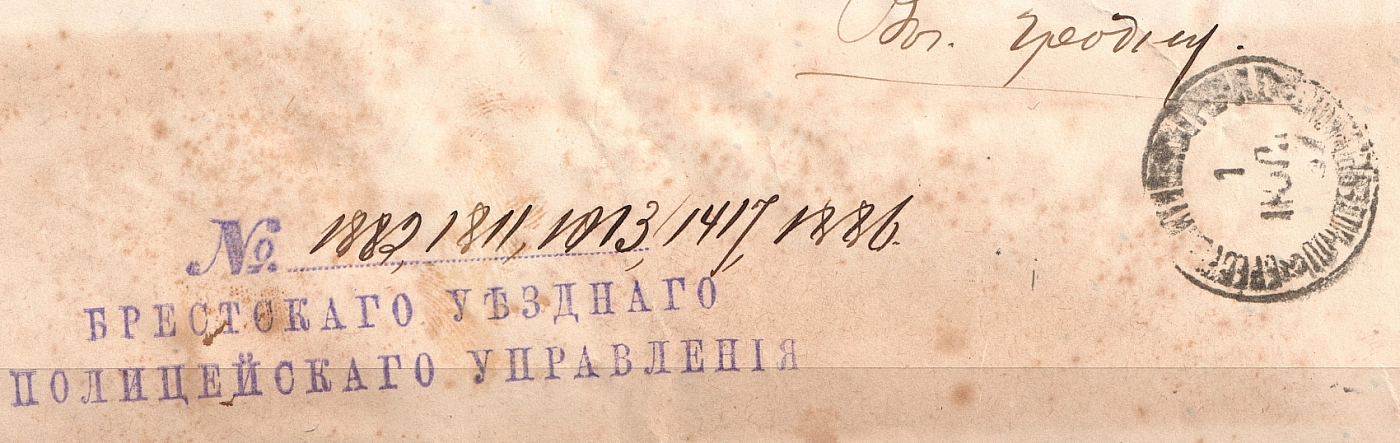 Въ г. Гродну.
№ 1882, 1811, 1813, 1417, 1886.
БРЕСТСКАГО УѢЗДНАГО
ПОЛИЦЕЙСКАГО УПРАВЛЕНІЯ
1
ІЮЛ.